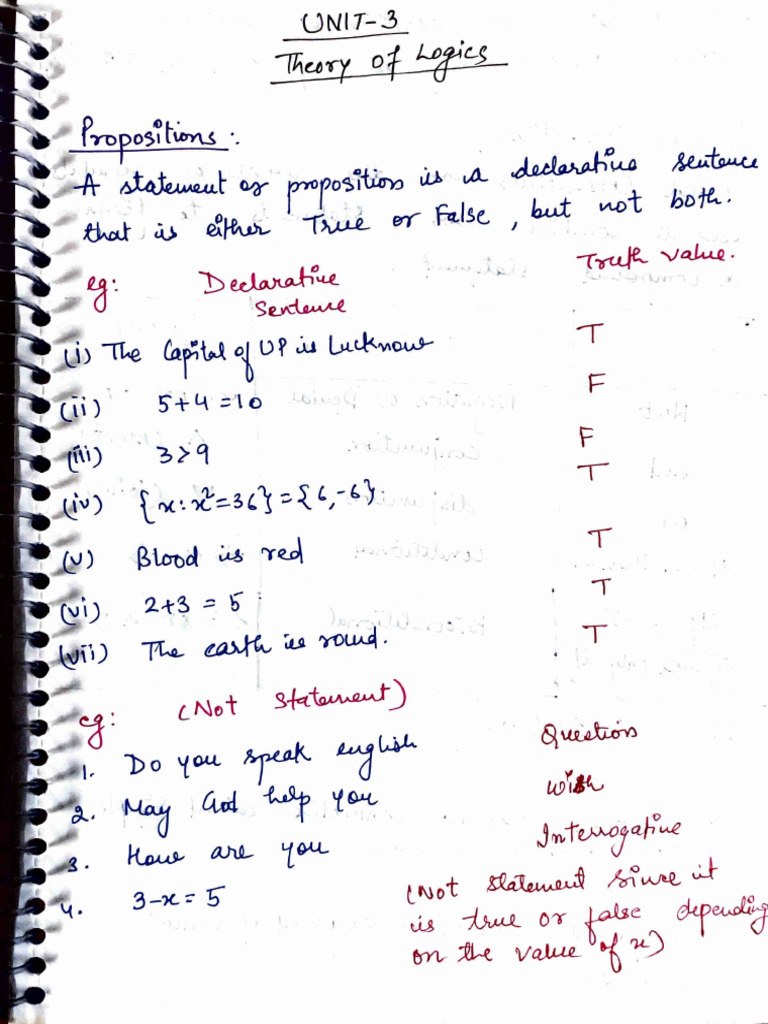 UNIT-3
Theory of Logics
Propositions:
A statement or proposition is a declarative sentence
that is either True or False, but not both.
eg: Declarative Sentence Truth value.
(i) The Capital of UP is Lucknow T
(ii) 5+4=10 F
(iii) 3>9 F
(iv) {x: x²=36}={6,-6} T
(v) Blood is red T
(vi) 2+3 = 5 T
(vii) The earth is round. T
eg: (Not Statement)
1. Do you speak english Question
2. May God help you Wish
3. How are you Interrogative
4. 3-x=5 (Not statement since it
is true or false depending
on the value of x)